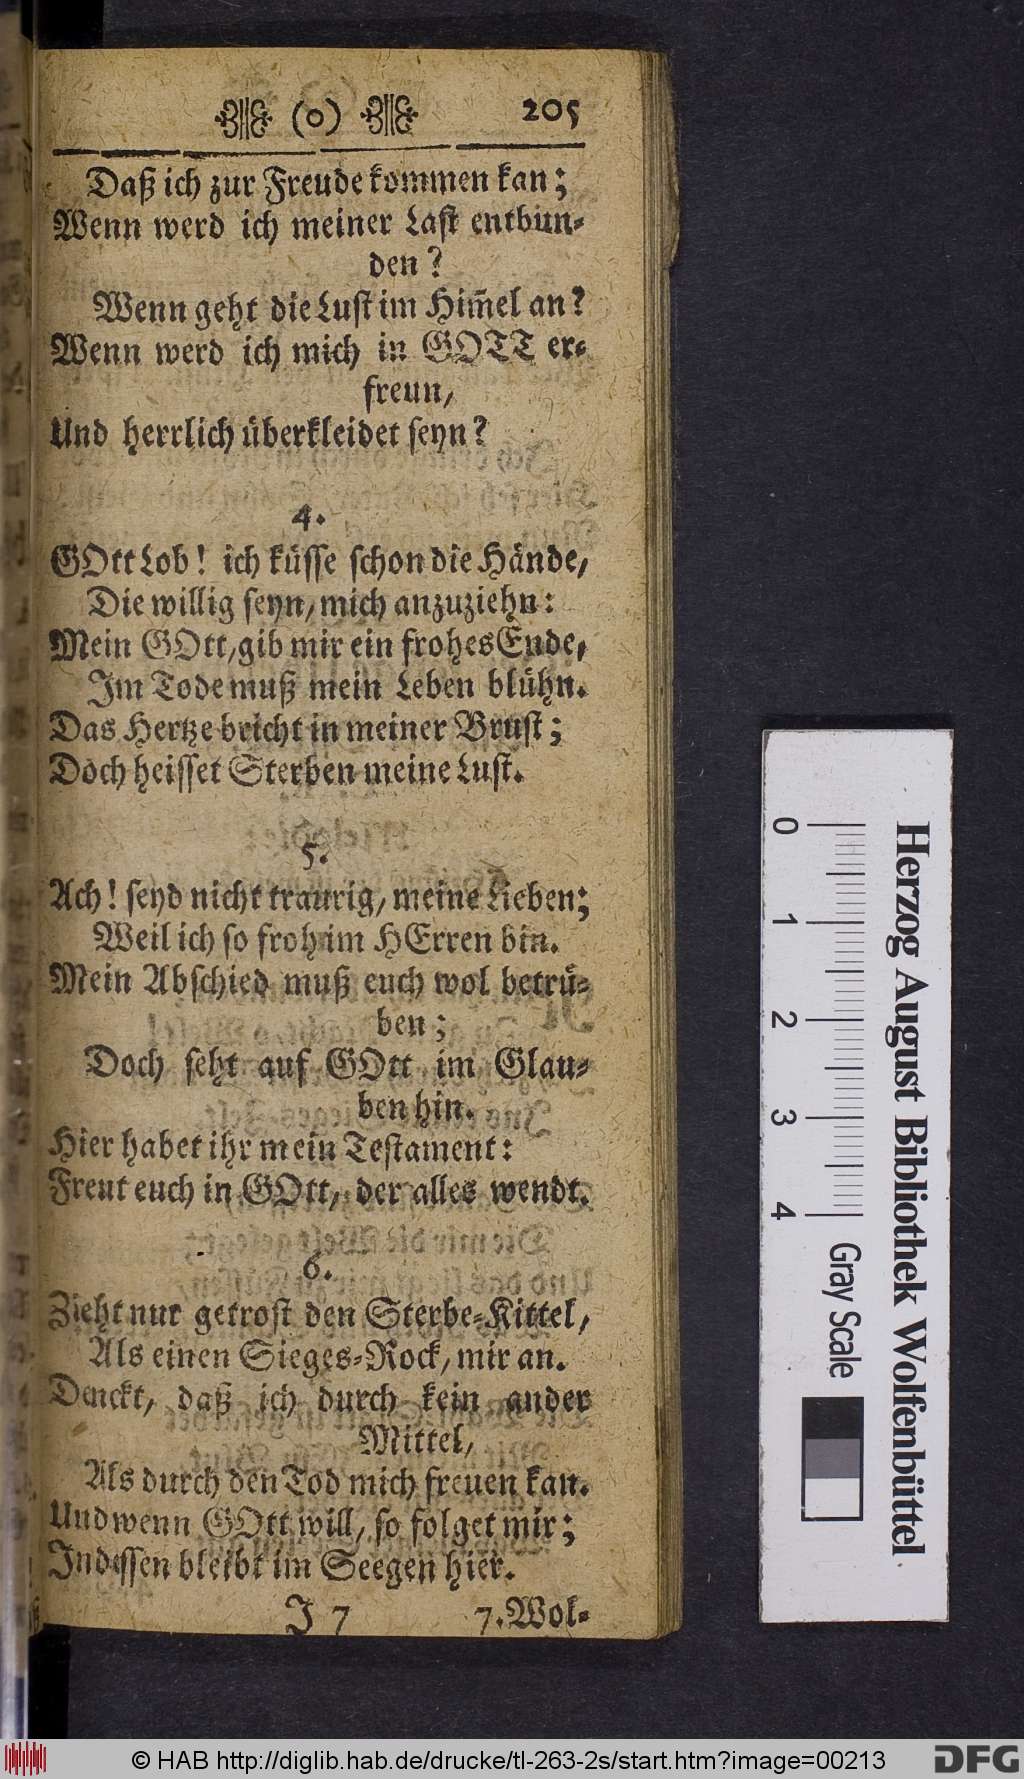 (o) 205
Daß ich zur Freude kommen kan;
Wenn werd ich meiner Last entbun-
den?
Wenn geht die Lust im Him̃el an?
Wenn werd ich mich in GOTT er-
freun,
Und herrlich überkleidet seyn?
4.
GOtt Lob! ich küsse schon die Hände,
Die willig seyn, mich anzuziehn:
Mein GOtt, gib mir ein frohes Ende,
Im Tode muß mein Leben blühn.
Das Hertze bricht in meiner Brust;
Doch heisset Sterben meine Lust.
5.
Ach! seyd nicht traurig, meine Lieben;
Weil ich so froh im HErren bin.
Mein Abschied muß euch wol betrü-
ben;
Doch seht auf GOtt im Glau-
ben hin.
Hier habet ihr mein Testament:
Freut euch in GOtt, der alles wendt.
6.
Zieht nur getrost den Sterbe-Kittel,
Als einen Sieges-Rock, mir an.
Denckt, daß ich durch kein ander
Mittel,
Als durch den Tod mich freuen kan.
Und wenn GOtt will, so folget mir;
Indessen bleibt im Seegen hier.
J 7 7. Wol-
Herzog August Bibliothek Wolfenbüttel
0 1 2 3 4 Gray Scale
© HAB http://diglib.hab.de/drucke/tl-263-2s/start.htm?image=00213
DFG